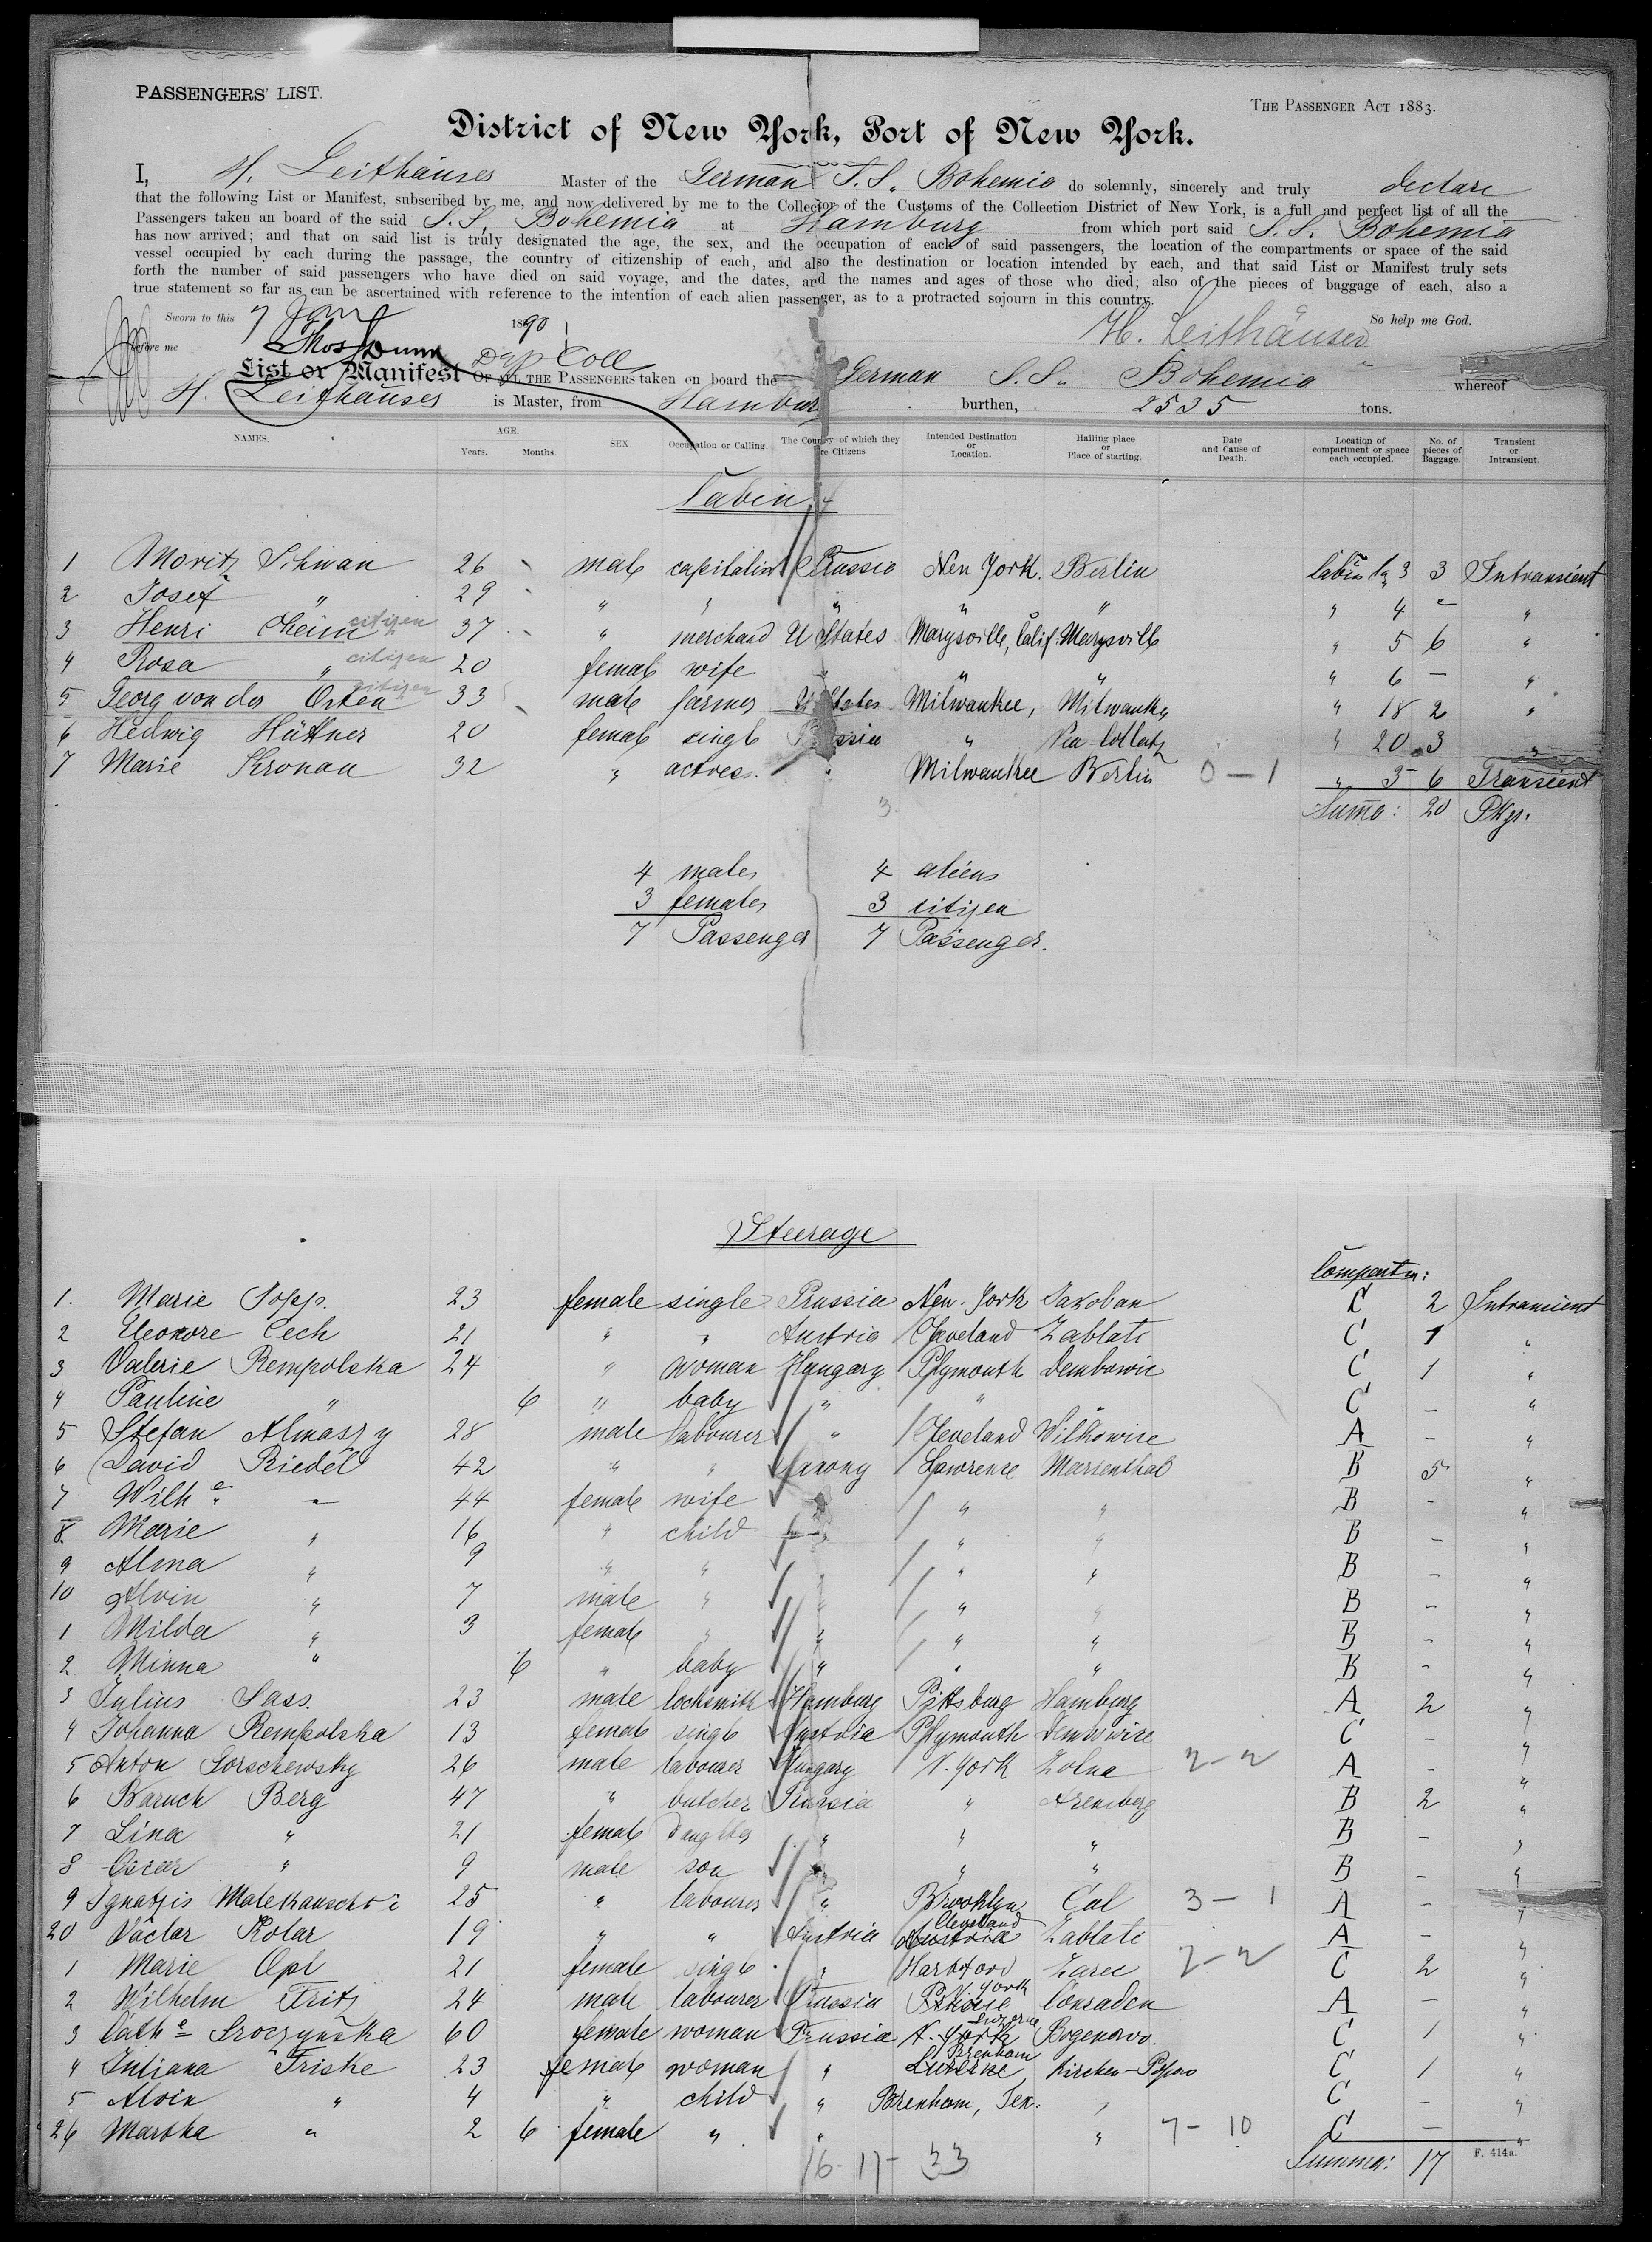 PASSENGERS' LIST.
THE PASSENGER ACT 1883.
District of New York, Port of New York.
I, H. Leithäuser Master of the German S.S. Bohemia do solemnly, sincerely and truly declare
that the following List or Manifest, subscribed by me, and now delivered by me to the Collector of the Customs of the Collection District of New York, is a full and perfect list of all the
Passengers taken an board of the said S.S. Bohemia at Hamburg from which port said S.S. Bohemia
has now arrived; and that on said list is truly designated the age, the sex, and the occupation of each of said passengers, the location of the compartments or space of the said
vessel occupied by each during the passage, the country of citizenship of each, and also the destination or location intended by each, and that said List or Manifest truly sets
forth the number of said passengers who have died on said voyage, and the dates, and the names and ages of those who died; also of the pieces of baggage of each, also a
true statement so far as can be ascertained with reference to the intention of each alien passenger, as to a protracted sojourn in this country.
Sworn to this 7 Jany 1890 So help me God.
H. Leithäuser
before me Thos Dunn Dep Coll
List or Manifest OF ALL THE PASSENGERS taken on board the German S.S. Bohemia whereof
H. Leithäuser is Master, from Hamburg burthen, 2535 tons.
NAMES. AGE. Years. Months. SEX Occupation or Calling. The Country of which they are Citizens Intended Destination or Location. Hailing place or Place of starting. Date and Cause of Death. Location of compartment or space each occupied. No. of pieces of Baggage. Transient or Intransient.
Cabin
1 Moritz Schwan 26 male capitalist Prussia New York. Berlin Cabin 3 3 Intransient
2 Josef " 29 " " " " " " 4 - "
3 Henri Cheim citizen 37 " merchand U States Marysville, Calif. Marysville " 5 6 "
4 Rosa " citizen 20 female wife " " " " 6 - "
5 Georg von der Osten citizen 33 male farmer U States Milwaukee, Milwaukee " 18 2 "
6 Hedwig Hüttner 20 female single Prussia " " 20 3 "
7 Marie Kronau 32 " actress. " Milwaukee Berlin 0-1 " 3 6 Transient
Suma: 20 Pkgs.
4 males 4 aliens
3 females 3 citizen
7 Passenger 7 Passenger.
Steerage
Compartm:
1. Marie Sopp. 23 female single Prussia New-York Jakoban C 2 Intransient
2 Eleonore Cech 21 " " Austria Cleveland Zablati C 1 "
3 Valerie Rempolska 24 " woman Hungary Plymouth Dembowic C 1 "
4 Pauline " 6 " baby " " " C - "
5 Stefan Almaszy 28 male labourer " Cleveland Wilkowice A - "
6 David Riedel 42 " " Saxony Lawrence Marienthal B 5 "
7 Wilhe " 44 female wife " " " B - "
8. Marie " 16 " child " " " B - "
9 Alma " 9 " " " " " B - "
10 Alvin " 7 male " " " " B - "
1 Milda " 3 female " " " " B - "
2 Minna " 6 " baby " " " B - "
3 Julius Sass. 23 male locksmith Hamburg Pittsburg Hamburg A 2 "
4 Johanna Rempolska 13 female single Austria Plymouth Dembowice C - "
5 Anton Sorschewsky 26 male labourer Hungary N. York Zolna 2-2 A - "
6 Baruch Berg 47 " butcher Prussia " Arensberg B 2 "
7 Lina " 21 female daughter " " " B - "
8 Oscar " 9 male son " " " B - "
9 Ignatzis 25 " labourer " Brooklyn Cal 3-1 A - "
20 Václar Kolar 19 " " Austria Austria Cleveland Zablati A - "
1 Marie Opl 21 female single " Hartford Zarec 2-2 C 2 "
2 Wilhelm Fritz 24 male labourer Prussia N. York Conraden A - "
3 Cathe Sroczynska 60 female woman Prussia N. York Luzerne Bogenowo. C 1 "
4 Juliana Friske 23 female woman " Luzerne Brenham Kirchen-Popowo C 1 "
5 Alvin " 4 " child " Brenham, Tex. " C - "
26 Martha " 2 6 female " " " 7-10 C - "
16-17-33 Summa: 17 F. 414a.